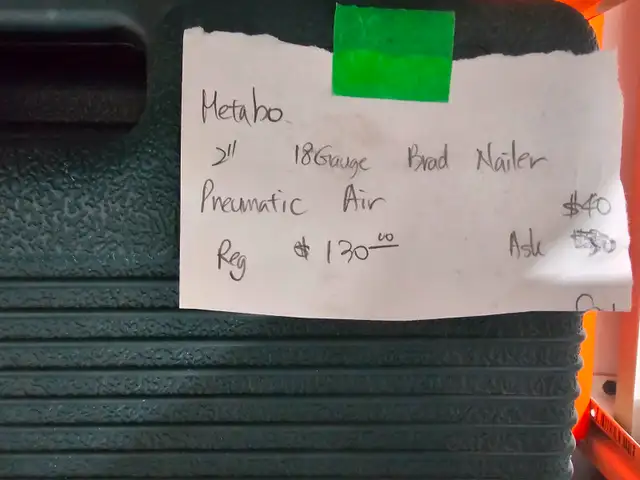 Metabo.
2" 18Gauge Brad Nailer
Pneumatic Air $40
Reg $130.00 Ask